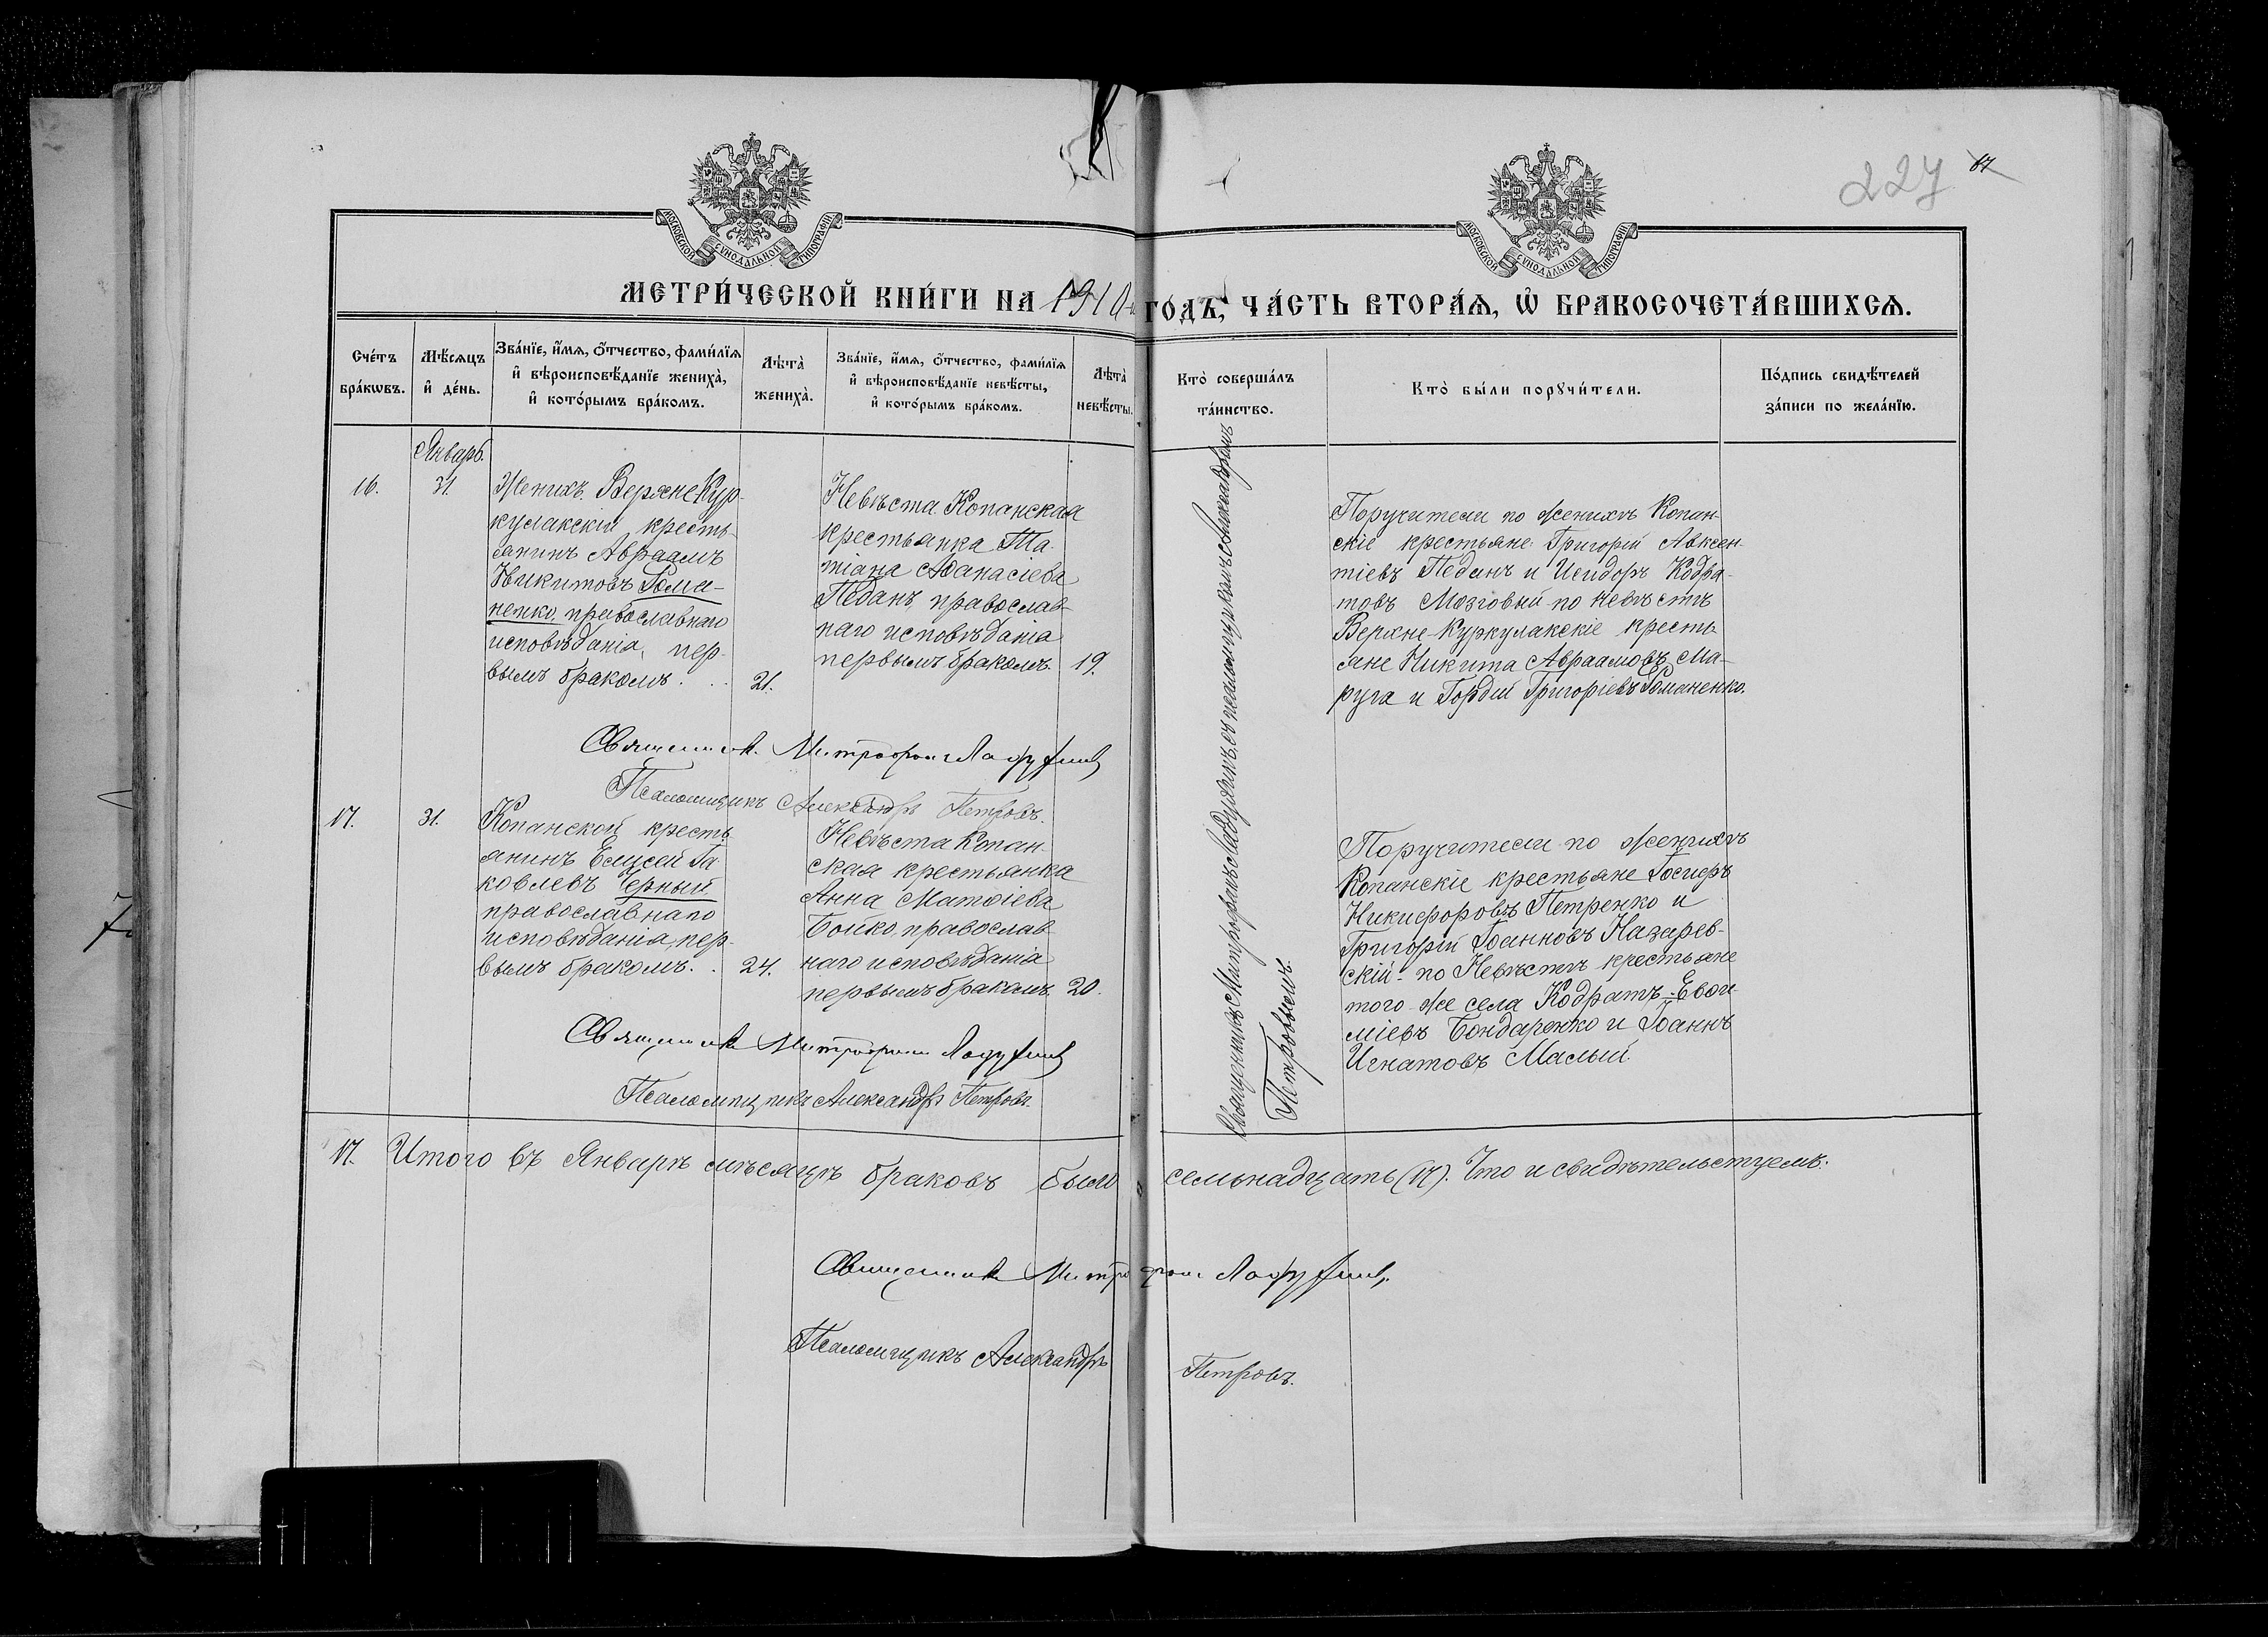 МОСКОВСКОЙ СѴНОДАЛЬНОЙ ТИПОГРАФІИ
МОСКОВСКОЙ СѴНОДАЛЬНОЙ ТИПОГРАФІИ
227
67
МЕТРИ́ЧЕСКОЙ КНИ́ГИ НА 1910 ГО́ДЪ, ЧА́СТЬ ВТОРА́Ѧ, Ѽ БРАКОСОЧЕТА́ВШИХСѦ.
Сче́тъ
бра́кѡвъ.
Мѣ́сѧцъ
и҆ де́нь.
Зва́нїе, и҆́мѧ, ѻ҆́тчество, фами́лїѧ
и҆ вѣроисповѣ́данїе жениха̀,
и҆ кото́рымъ бра́комъ.
Лѣ́та̀
жениха̀.
Зва́нїе, и҆́мѧ, ѻ҆́тчество, фами́лїѧ
и҆ вѣроисповѣ́данїе невѣ́сты,
и҆ кото́рымъ бра́комъ.
Лѣ́та̀
невѣ́сты.
Кто̀ соверша́лъ
та́инство.
Кто̀ бы́ли порꙋчи́тели.
По́дпись свидѣ́телей
за́писи по жела́нїю.
Январь.
16.
31.
Женихъ. Верхне Кур-
кулакскій кресть-
янинъ Авраамъ
Никитовъ Рома-
ненко, православнаго
исповѣданія, пер-
вымъ бракомъ. . .
21.
Невѣста Копанская
крестьянка Та-
тіана Аѳанасіева
Педанъ, православ-
наго исповѣданія
первымъ бракомъ.
19.
Священникъ Митрофанъ Ладухинъ съ псаломщикомъ Александромъ
Петровымъ.
Поручители по женихѣ Копан-
скіе крестьяне: Григорій Авксен-
тіевъ Педанъ и Исидоръ Кодра-
товъ Мозговый - по невѣстѣ
Верхне-Куркулакскіе кресть-
яне Никита Авраамовъ Ма-
руга и Гордій Григоріевъ Романенко.
Священникъ Митрофанъ Ладухинъ
Псаломщикъ Александръ Петровъ.
17.
31.
Копанской кресть-
янинъ Елисей Іа-
ковлевъ Черный
православнаго
исповѣданія, пер-
вымъ бракомъ. .
24.
Невѣста Копан-
ская крестьянка
Анна Матѳіева
Бойко, православ-
наго исповѣданія
первымъ бракомъ.
20.
Поручители по женихѣ
Копанскіе крестьяне Іосифъ
Никифоровъ Петренко и
Григорій Іоанновъ Назарев-
скій - по Невѣстѣ крестьяне
того-же села Кодратъ Евѳи-
міевъ Бондаренко и Іоаннъ
Игнатовъ Малый.
Священникъ Митрофанъ Ладухинъ
Псаломщикъ Александръ Петровъ.
17. Итого въ Январѣ мѣсяцѣ браковъ было семьнадцать (17). Что и свидѣтельствуемъ:
Священникъ Митрофанъ Ладухинъ.
Псаломщикъ Александръ Петровъ.